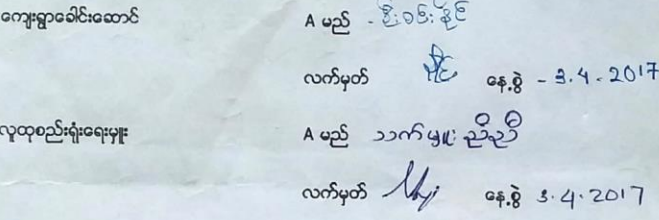 ကျေးရွာခေါင်းဆောင် A မည် - ဦးဝင်းနိုင်
လက်မှတ် နေ့စွဲ - 3.4.2017
လူထုစည်းရုံးရေးမှူး A မည် သက်မှူးညီညီ
လက်မှတ် နေ့စွဲ 3.4.2017